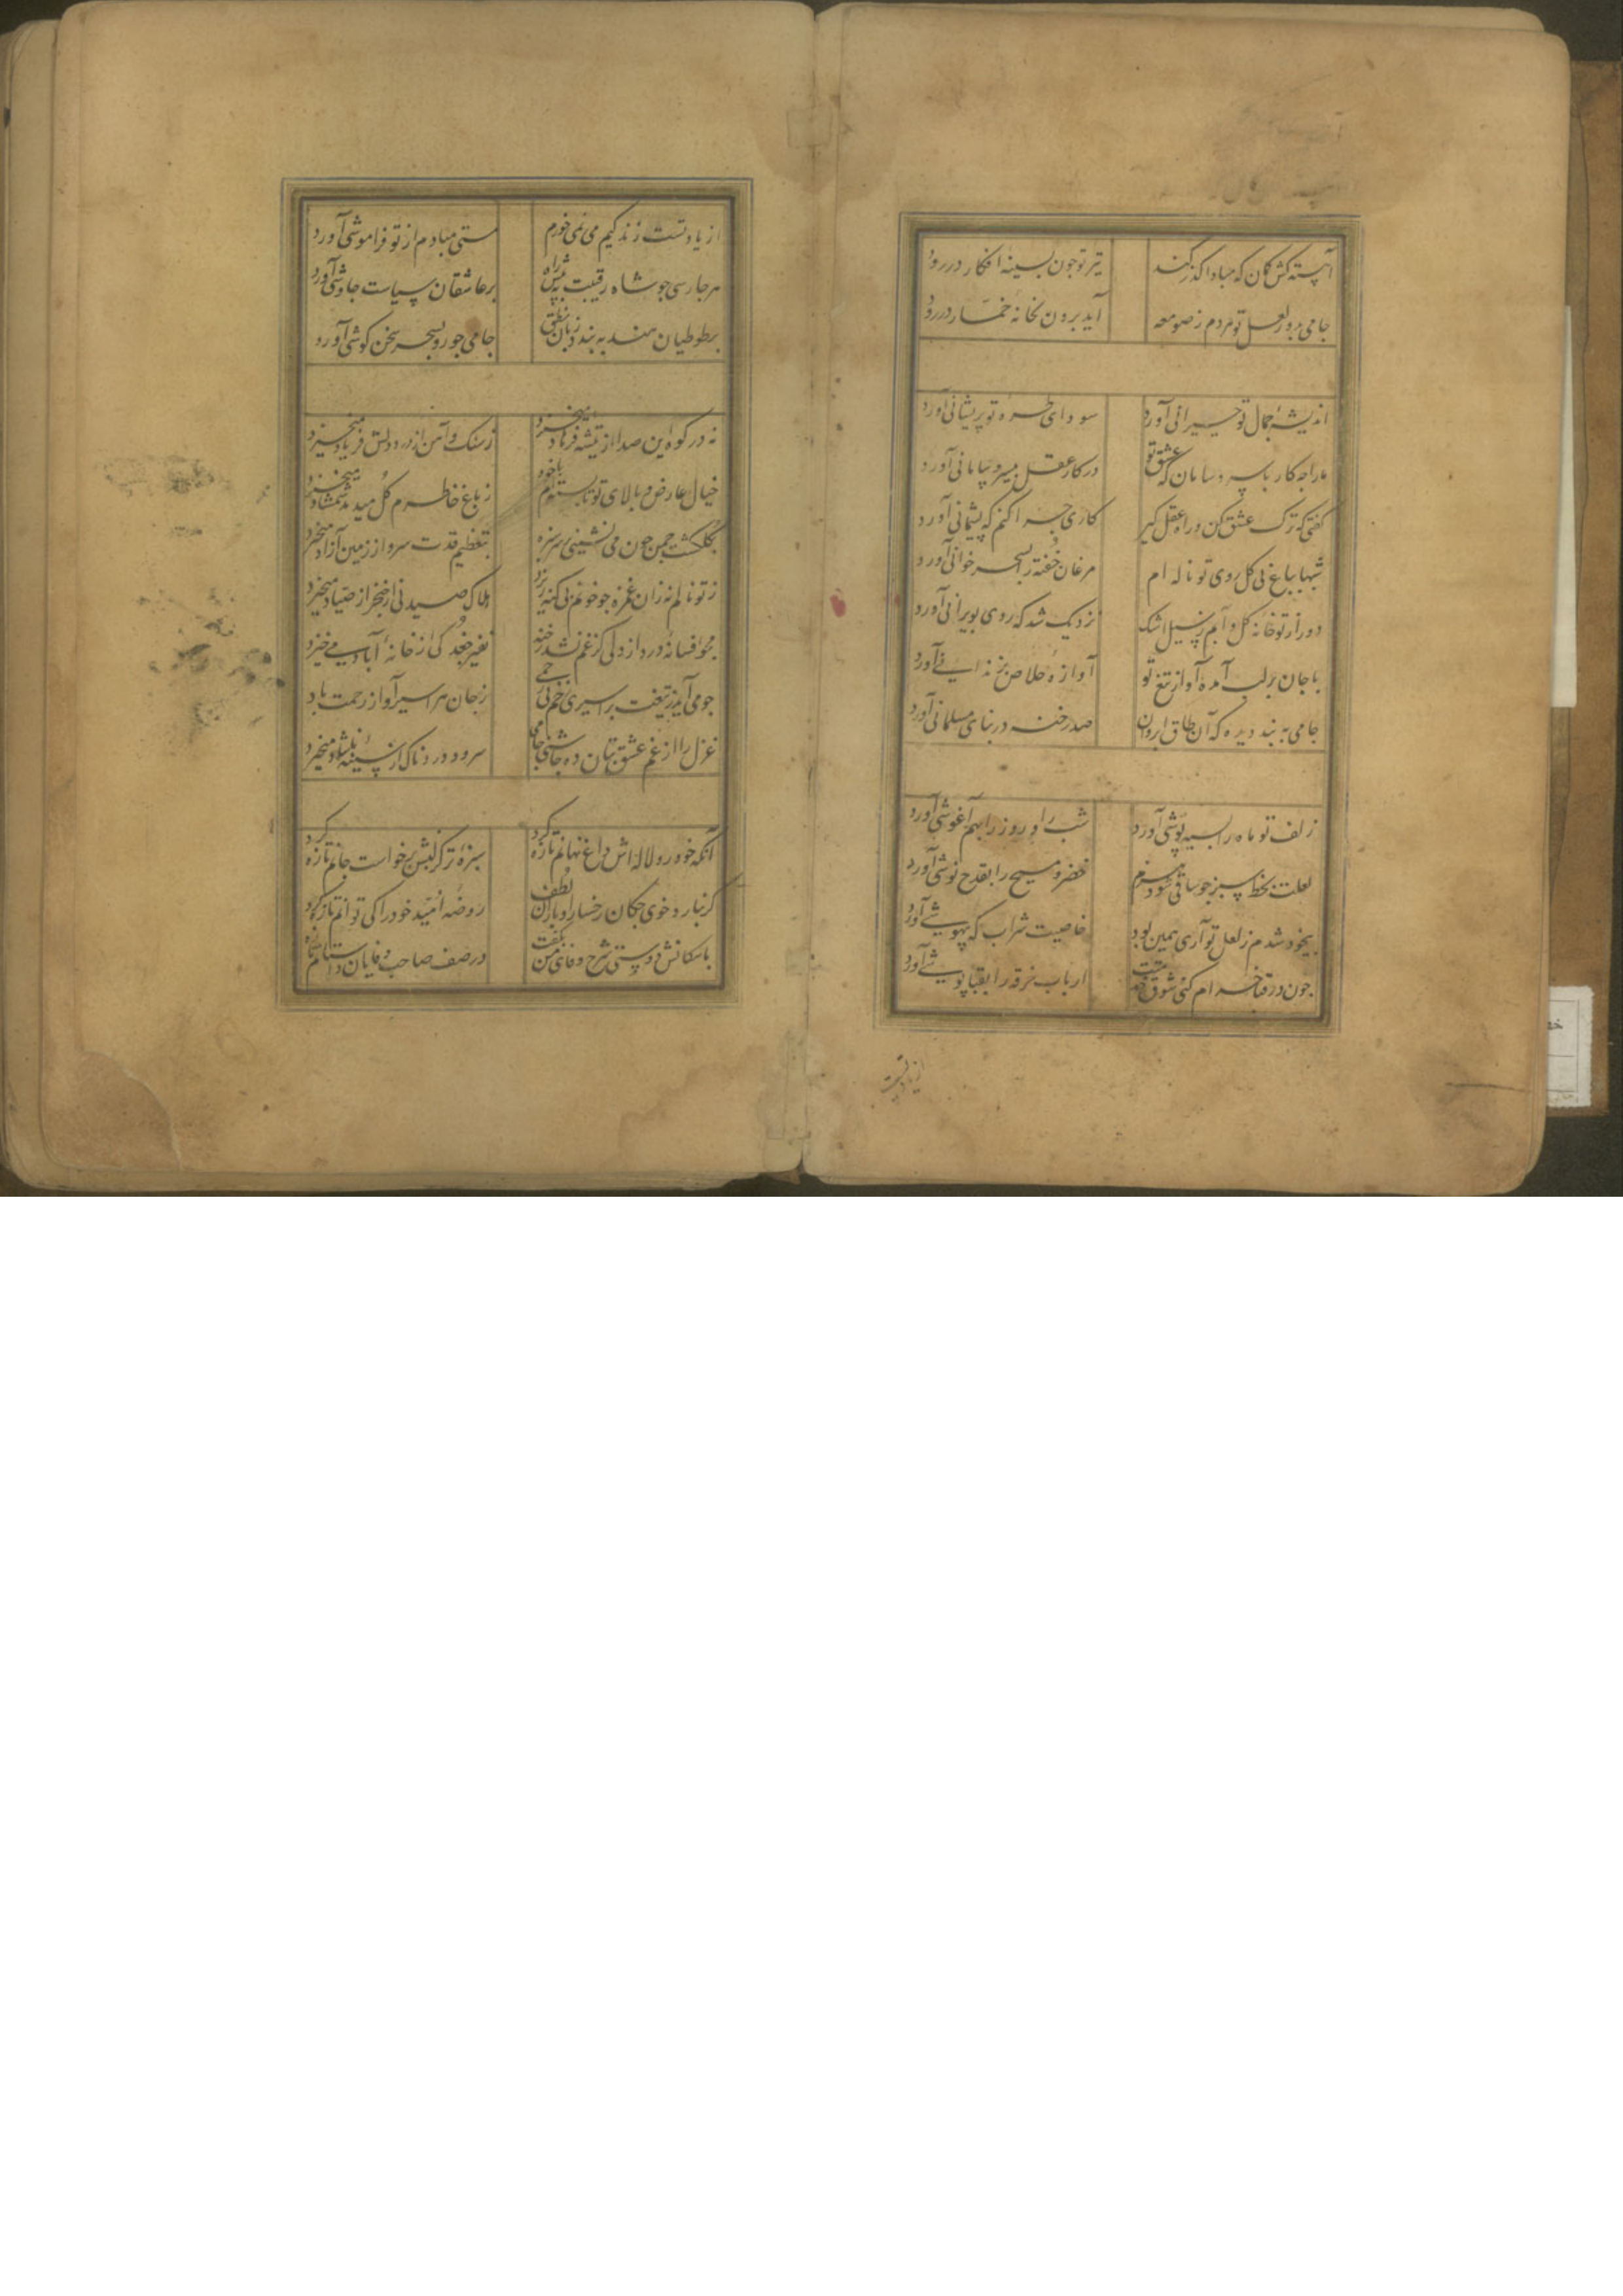 آهسته کش کمان که مبادا کذر کند
تیر تو جون بسینهٔ افکار در رود
جامی بدور لعل تو هردم ز صومعه
آید برون بخانهٔ خمار در رود
اندیشهٔ جمال تو حیرانی آورد
سودای طرهٔ تو پریشانی آورد
ما را جه کار با سر و سامان که عشق تو
در کار عقل بیسر و سامانی آورد
کفتی که ترک عشق کن و راه عقل کیر
کاری جرا کنم که پشیمانی آورد
شبها بباغ بی کل روی تو ناله ام
مرغان خفته را بسحر خوانی آورد
دور از تو خانهٔ کل و آبم ز سیل اشک
نزدیک شد که روی بویرانی آورد
با جان بر لب آمده آواز تیغ تو
آوازهٔ خلاص ز زندانی آورد
جامی به بند دیده که آن طاق ابروان
صد رخنه در بنای مسلمانی آورد
زلف تو ماه را بسیه پوشی آورد
شب را و روز را بهم آغوشی آورد
لعلت بخط سبز جو ساقی شود بزم
خضر و مسیح را بقدح نوشی آورد
بیخود شدم ز لعل تو آری همین بود
خاصیت شراب که بیهوشی آورد
جون در قبا خرام کنی شوق قد تو
ارباب خرقه را بقبا پوشی آورد
از یاد تست
از یاد تست زندکیم می نمی خورم
مستی مبادم از تو فراموشی آورد
هر جا رسی جو شاه رقیبت به پیش راه
بر عاشقان سیاست جاوشی آورد
بر طوطیان هند به بندد زبان نطق
جامی جو رو بسحر سخن کوشی آورد
نه در کوه این صدا از تیشهٔ فرهاد میخیزد
ز سنک و آهن از درد دلش فریاد میخیزد
خیال عارض و بالای تو تا بسته ام با خود
ز باغ خاطرم کل میدمد شمشاد میخیزد
بکلکشت جمن جون می نشینی بر سر سبزه
بتعظیم قدت سرو از زمین آزاد میخیزد
ز تو نالم نه زان غمزه جو خونم بی کنه ریزد
هلاک صید نی از خنجر از صیاد میخیزد
مجو افسانهٔ درد از دلی کز غم نشد رخنه
نفیر جغد کی از خانهٔ آباد می خیزد
جو می آید ز تیغت بر اسیری زخم بی رحمی
ز جان هر اسیر آواز رحمت باد
غزل را از غم عشق بتان ده جاشنی جامی
سرود دردناک از سینهٔ ناشاد میخیزد
آنکه خود رو لاله اش داغ نهانم تازه کرد
سبزهٔ تر کز لبش برخواست جانم تازه کرد
کر نبارد خوی جکان رخسار او باران لطف
روضهٔ امید خود را کی توانم تازه کرد
با سکانش دوستی شرح وفای من بکفت
در صف صاحب وفایان داستانم تازه